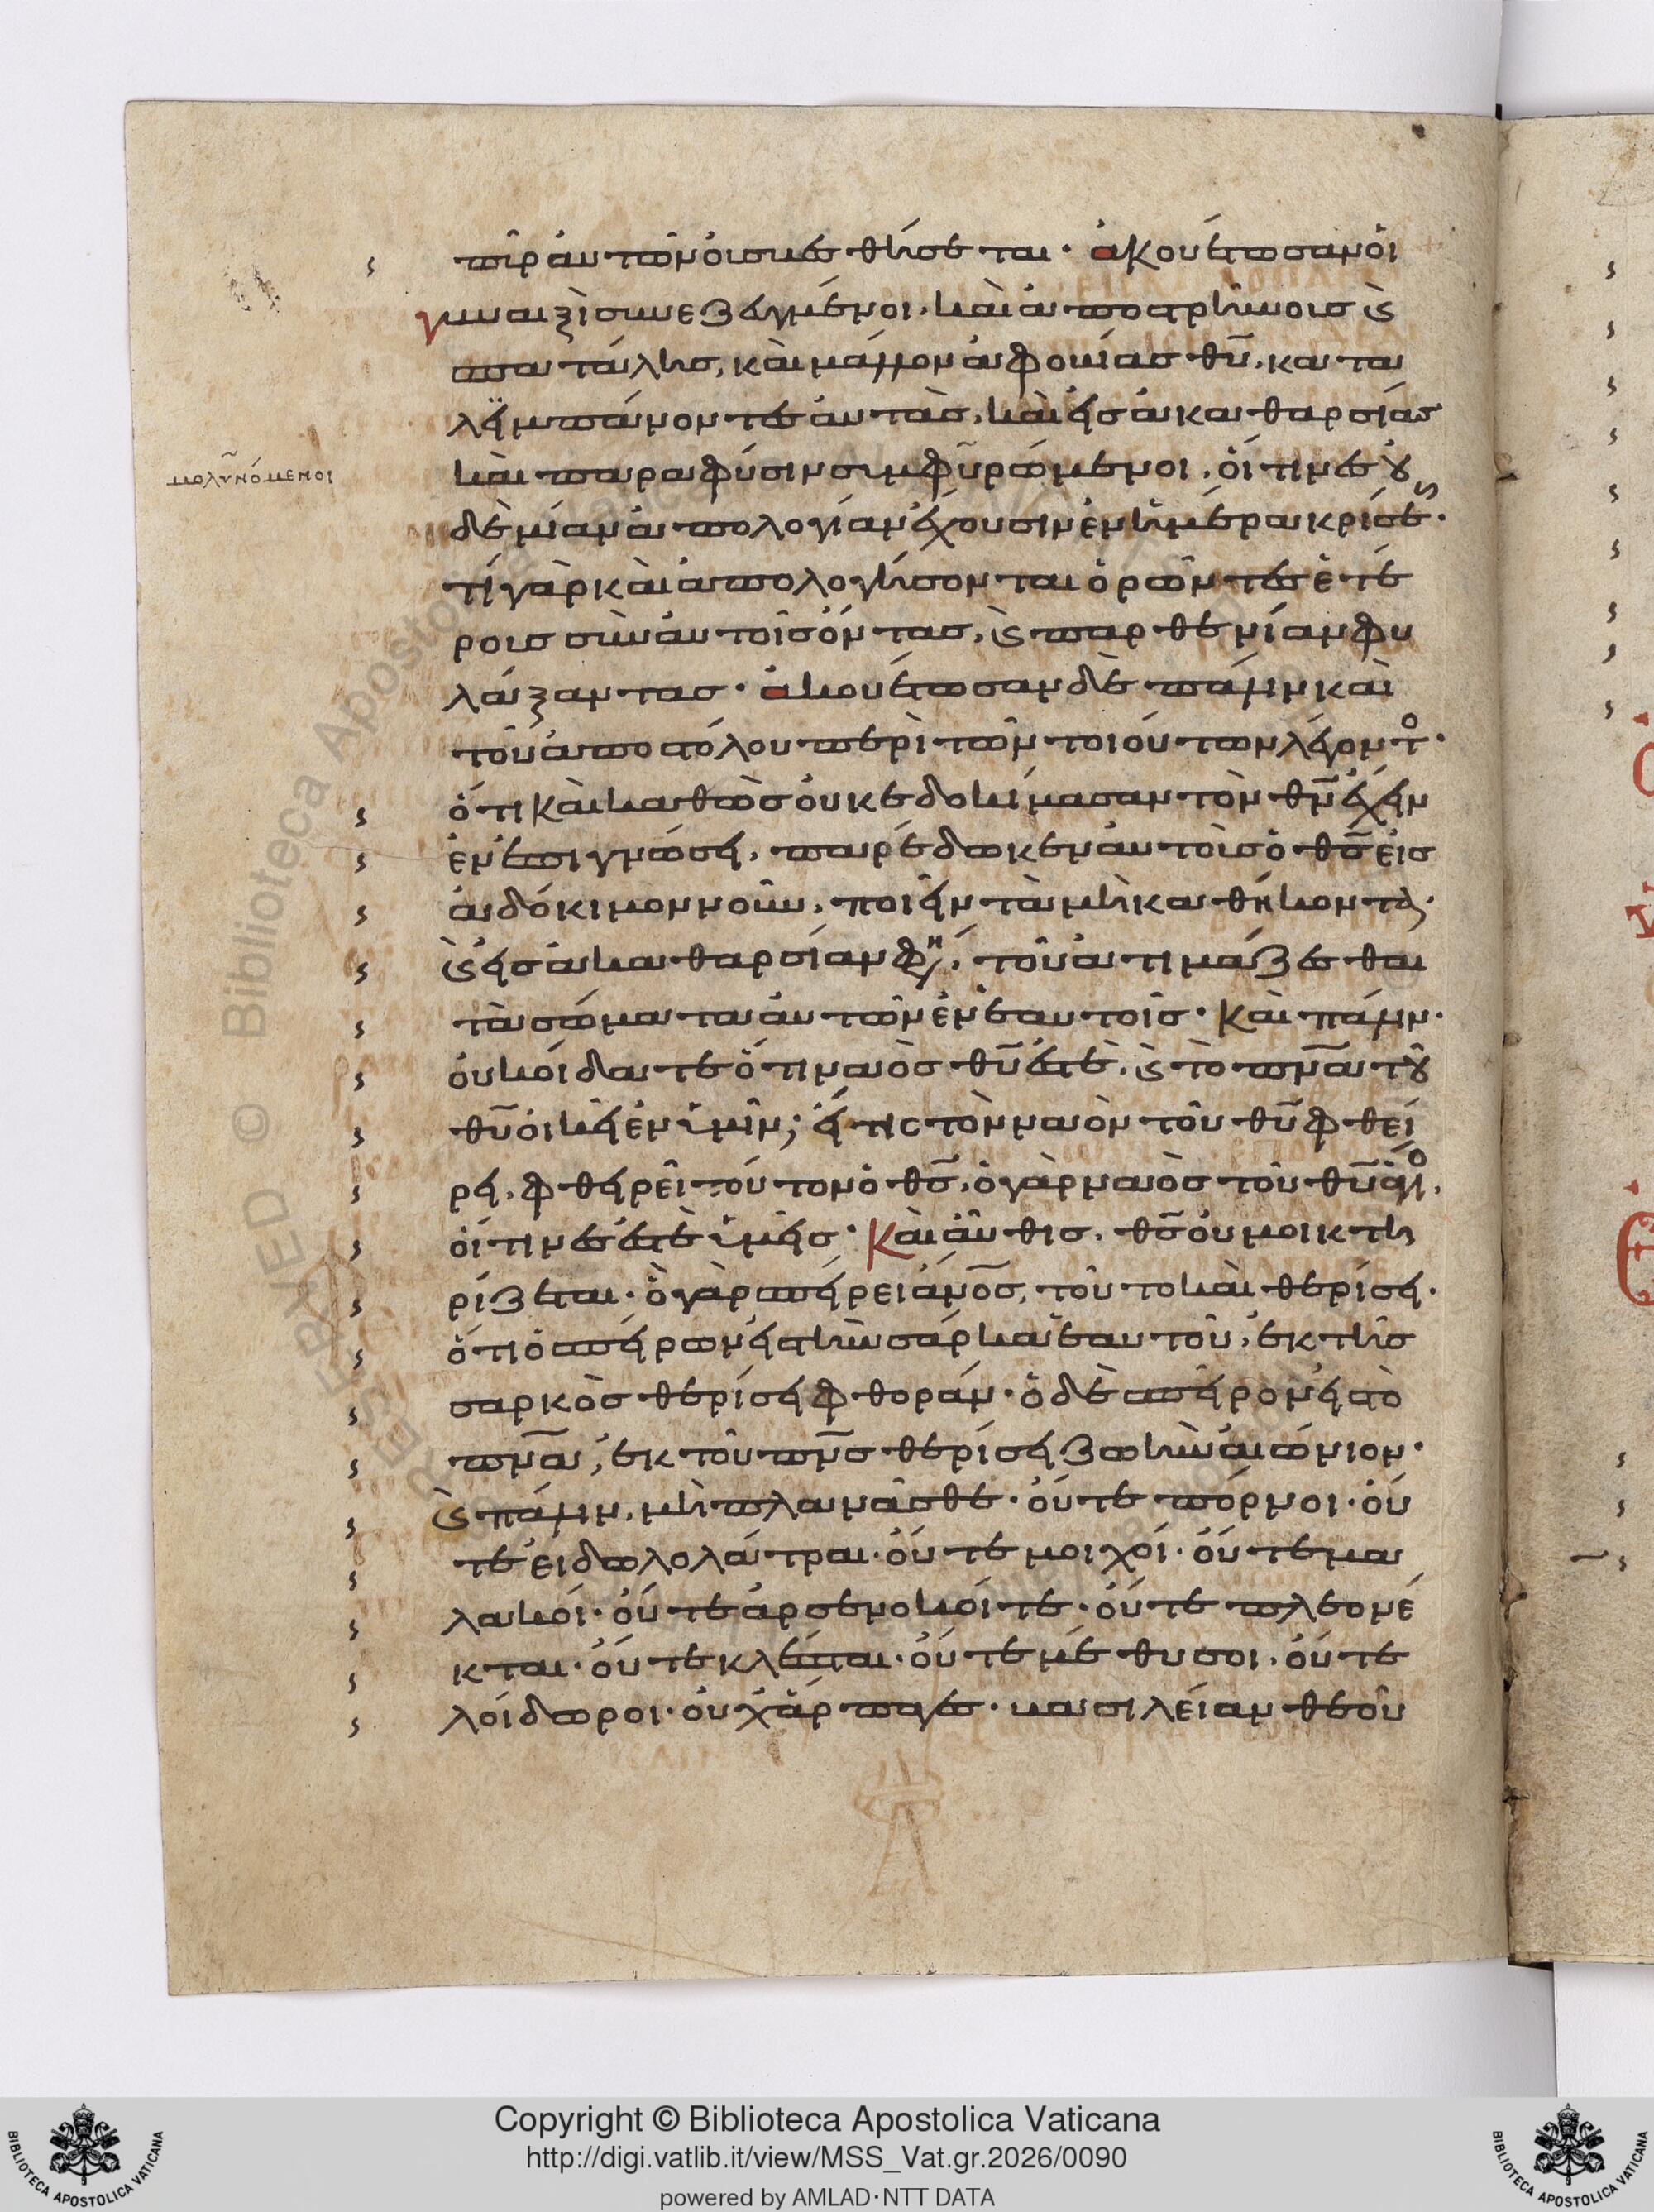 πῦρ αὐτῶν οὐ σβεσθήσεται· ἀκουέτωσαν οἱ
γυναιξὶ συνεζευγμένοι, καὶ ἀποστρήνοις ϗ
σπατάλης, καὶ μᾶλλον ἀφοβίας θυ, κατα
λειμπάνοντες αὐτὰς, καὶ εἰς ἀκαθαρσίας
καὶ παραφύσιν συμφυρόμενοι, οἵτινες οὐ
μολυνόμενοι
δεμίαν ἀπολογίαν ἔχουσιν ἐν ἡμέρα κρίσεως·
τί γὰρ καὶ ἀπολογήσονται ὁρῶντες ἑτέ
ροις σὺν αὐτοῖς ὄντας, ϗ παρθενίαν φυ
λάξαντας· ἀκουέτωσαν δὲ πάλιν καὶ
τοῦ ἀποστόλου περὶ τῶν τοιούτων λέγοντο·
ὅτι καὶ καθὼς οὐκ ἐδοκίμασαν τὸν θν ἔχειν
ἐν ἐπιγνώσει, παρέδωκεν αὐτοὺς ὁ θς εἰς
ἀδόκιμον νοῦν, ποιεῖν τὰ μὴ καθήκοντα·
ϗ εἰς ἀκαθαρσίαν φη, τοῦ ἀτιμάζεσθαι
τὰ σώματα αὐτῶν ἐν ἑαυτοῖς· καὶ πάλιν·
οὐκ οἴδατε ὅτι ναὸς θυ ἐστὲ, ϗ τὸ πνα τοῦ
θυ οἰκεῖ ἐν ὑμῖν; εἴ τις τὸν ναὸν τοῦ θυ φθεί
ρει, φθερεῖ τοῦτον ὁ θς, ὁ γὰρ ναὸς τοῦ θυ ἅγιο,
οἵτινες ἐστὲ ὑμεῖς· Καὶ αὖθις, θς οὐ μυκτη
ρίζεται· ὃ γὰρ σπείρει ἀνος, τοῦτο καὶ θερίσει·
ὅτι ὁ σπείρων εἰς τὴν σάρκα ἑαυτοῦ, ἐκ τῆς
σαρκὸς θερίσει φθοράν· ὁ δὲ σπείρον εἰς τὸ
πνα, ἐκ τοῦ πνς θερίσει ζωὴν αἰώνιον·
ϗ πάλιν, μὴ πλανᾶσθε· οὔτε πόρνοι· οὔ
τε εἰδωλολάτραι· οὔτε μοιχοί· οὔτε μα
λακοί· οὔτε ἀρσενοκοίτε· οὔτε πλεονέ
κται· οὔτε κλέπται· οὔτε μέθυσοι· οὔτε
λοίδωροι· οὐχ ἅρπαγες· βασιλείαν θεοῦ
Copyright © Biblioteca Apostolica Vaticana
http://digi.vatlib.it/view/MSS_Vat.gr.2026/0090
powered by AMLAD·NTT DATA
BIBLIOTECA APOSTOLICA VATICANA
BIBLIOTECA APOSTOLICA VATICANA